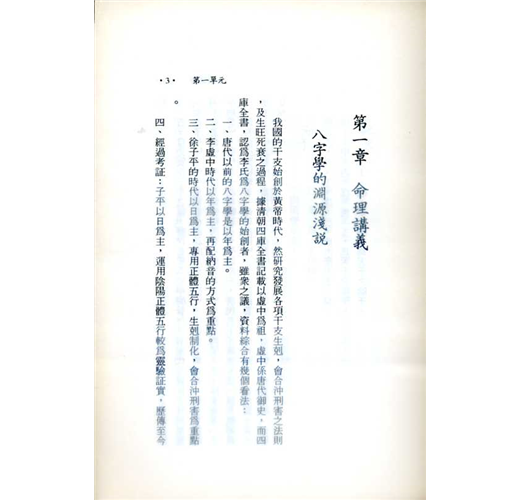 第一章　命理講義
八字學的淵源淺説
我國的干支始創於黃帝時代，然研究發展各項干支生剋，會合沖刑害之法則
，及生旺死衰之過程，據清朝四庫全書記載以虛中爲祖，虛中係唐代御史，而四
庫全書，認爲李氏爲八字學的始創者，雖衆之議，資料綜合有幾個看法：
一、唐代以前的八字學是以年爲主。
二、李虛中時代以年爲主，再配納音的方式爲重點。
三、徐子平的時代以日爲主，專用正體五行，生剋制化，會合沖刑害爲重點
。
四、經過考証：子平以日爲主，運用陰陽正體五行較爲靈驗証實，歷傳至今
第一單元
·3·